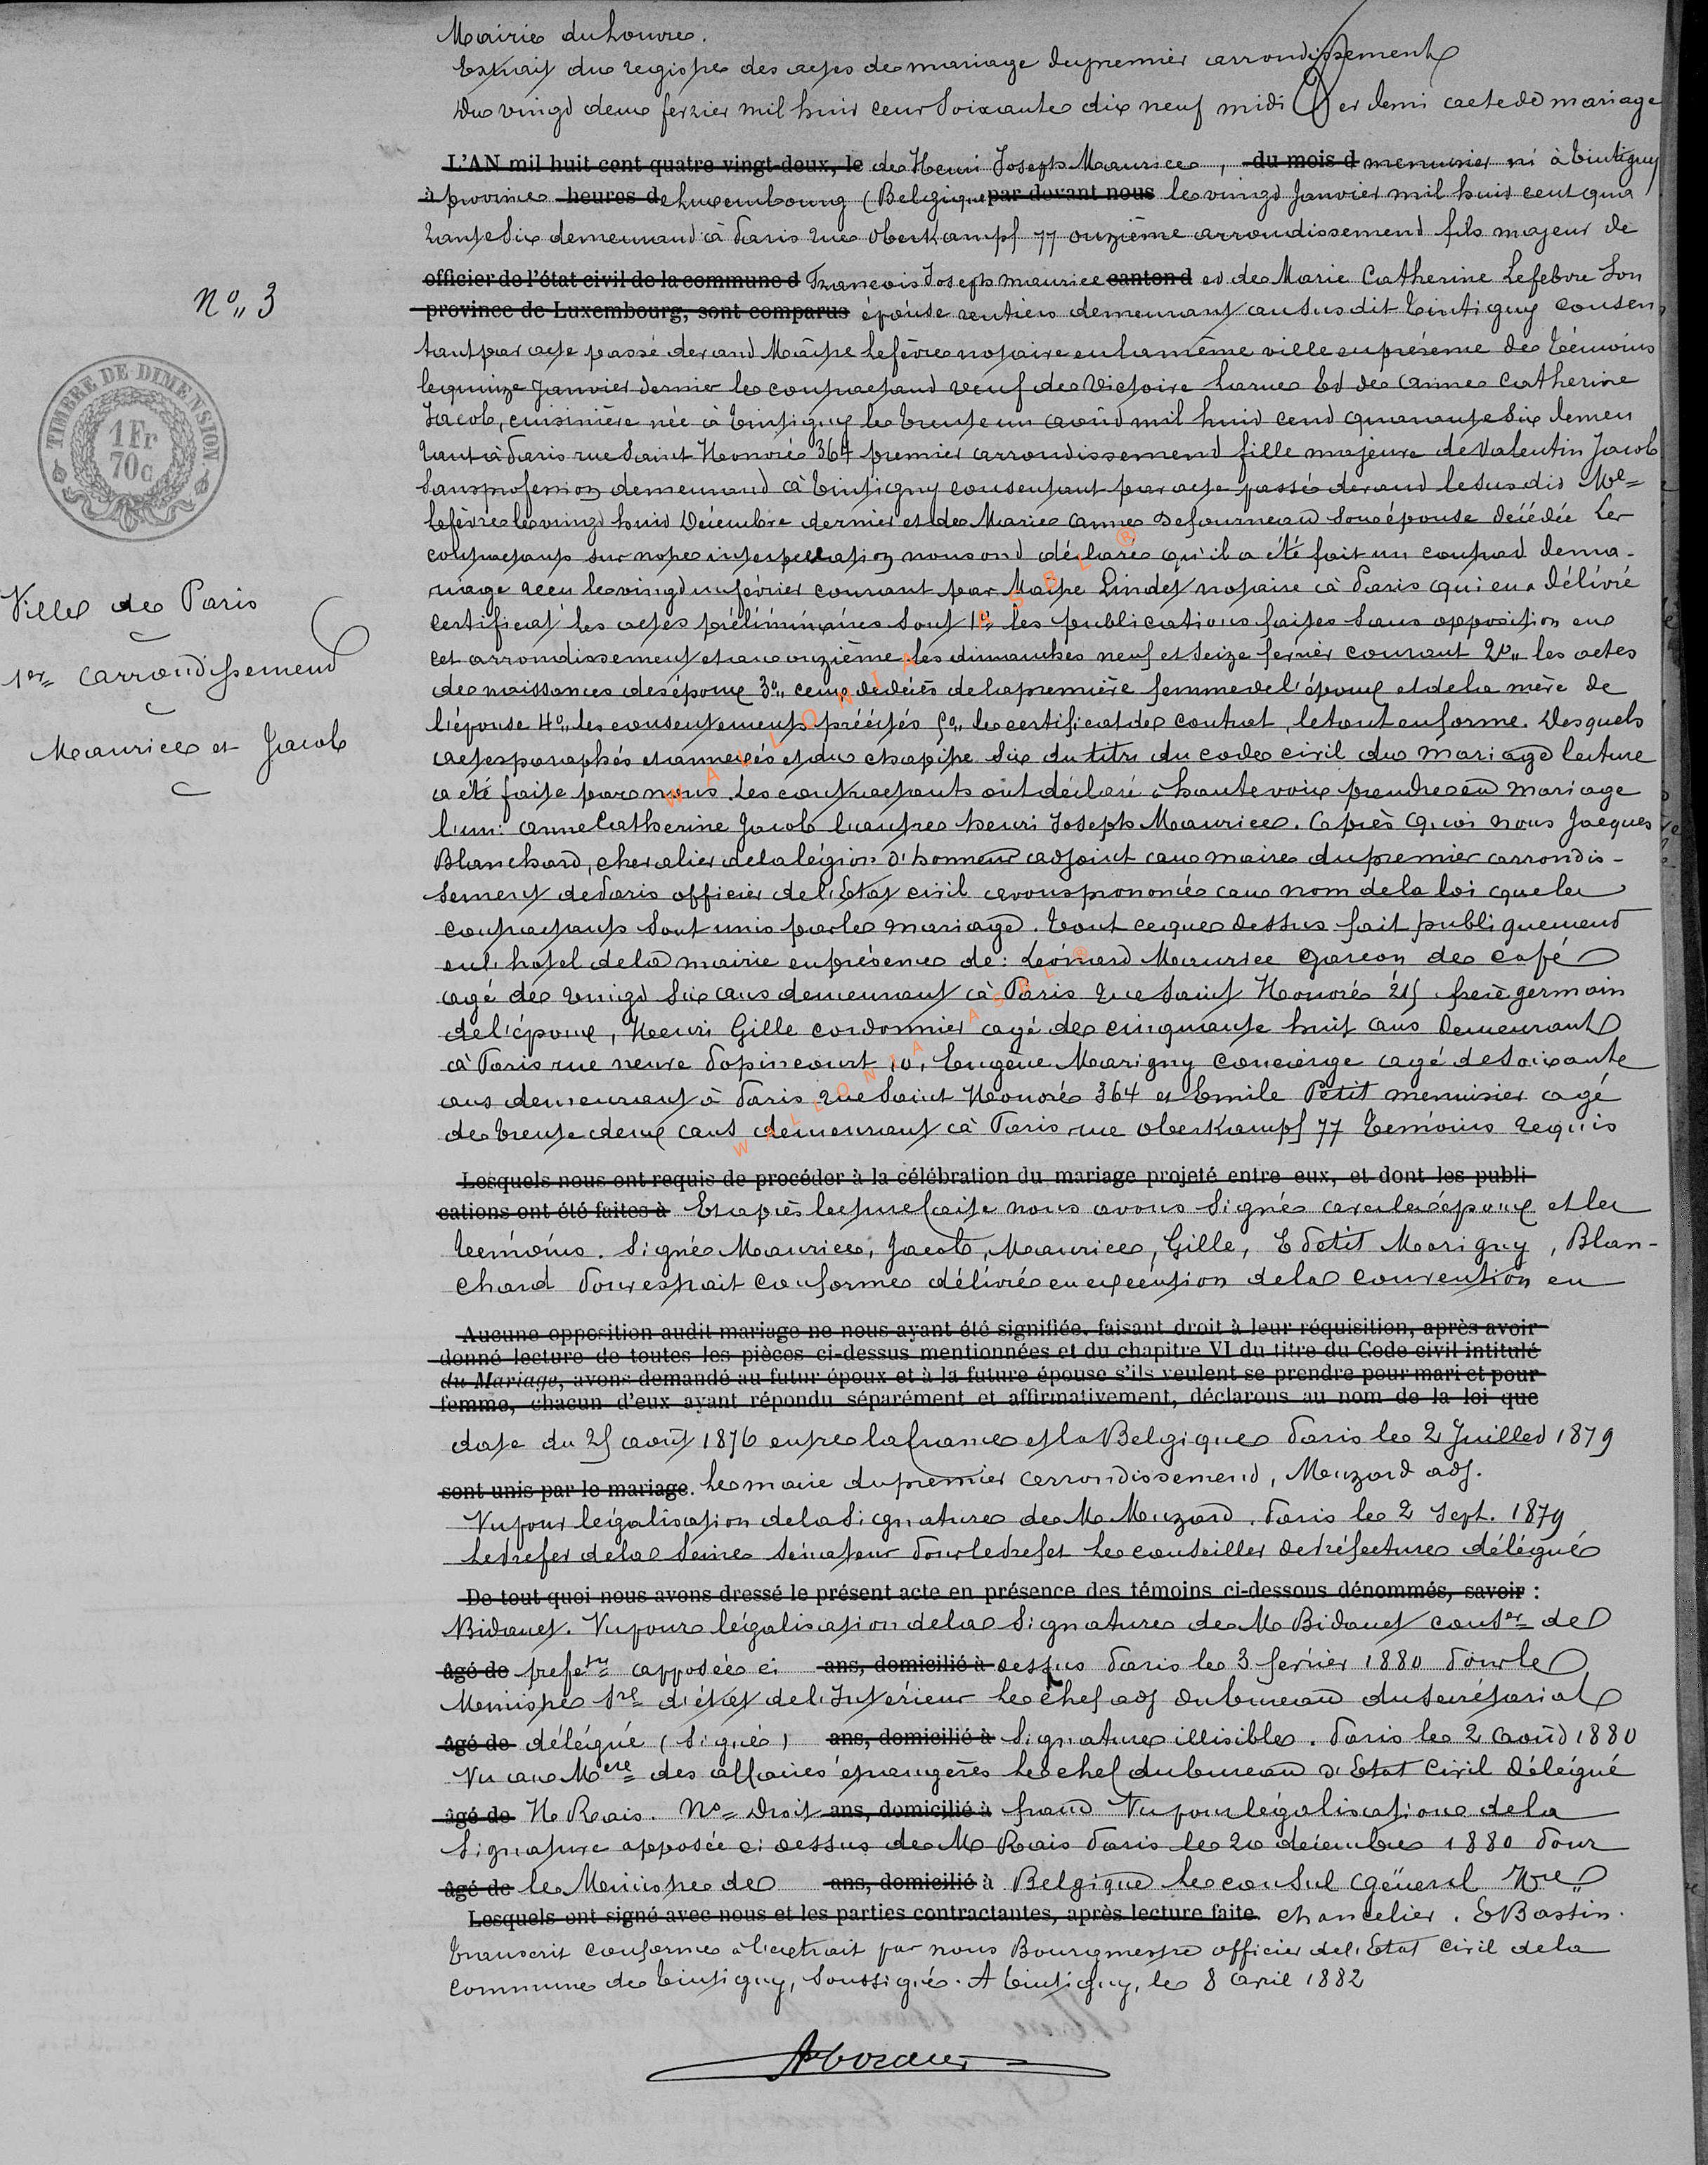 Mairie du Louvre.
Extrait du registre des actes de mariage du premier arrondissement
Du vingt deux fevrier mil huit cent soixante dix neuf midi et demi acte de mariage
L'AN mil huit cent quatre vingt-deux, le de Henri Joseph Maurice, du mois d menuisier né à Tintigny
à province heures de Luxembourg (Belgique par devant nous le vingt Janvier mil huit cent qua
rante six demeurant à Paris rue Oberkampf 77 onzième arrondissement fils majeur de
officier de l'état civil de la commune d François Joseph Maurice canton d et de Marie Catherine Lefebvre son
province de Luxembourg, sont comparus épouse rentiers demeurant au susdit Tintigny consen
tant par acte passé devant Maître Lefèvre notaire en la même ville en présence de témoins
le quinze Janvier dernier le contractant veuf de Victoire Et de Anne Catherine
Jacob, cuisinière née à Tintigny le trente un août mil huit cent quarante six demeu
rant à Paris rue Saint Honoré 364 premier arrondissement fille majeure de Valentin Jacob
sans profession demeurant à Tintigny consentant par acte passé devant le susdit Me
Lefèvre le vingt huit Décembre dernier et de Marie Anne Defourneau son épouse décédée Les
contractants sur notre interpellation nous ont déclaré qu'il a été fait un contrat de ma-
riage reçu le vingt un février courant par Maître Lindet notaire à Paris qui en a délivré
certificat les actes préliminaires sont 1o les publications faites sans opposition en
cet arrondissement et au onzième les dimanches neuf et seize fevrier courant 2o les actes
de naissances des époux 3o ceux de décès de la première femme de l'époux et de la mère de
l'épouse 4o les consentements précités 5o le certificat de contrat, le tout en forme. Desquels
actes paraphés et annexés et du chapitre six du titre du code civil du mariage lecture
a été faite par nous. Les contractants ont déclaré à haute voix prendre en mariage
l'un: Anne Catherine Jacob l'autre Henri Joseph Maurice. Après quoi nous Jacques
Blanchard, chevalier de la légion d'honneur adjoint au maire du premier arrondis-
sement de Paris officier de l'Etat civil avons prononcé au nom de la loi que les
contractants sont unis par le mariage. Tout ce que dessus fait publiquement
en l'hôtel de la mairie en présence de: Léonard Maurice garçon de café
agé de vingt six ans demeurant à Paris rue Saint Honoré 215 frère germain
de l'époux, Henri Gille cordonnier agé de cinquante huit ans demeurant
à Paris rue neuve Popincourt 10, Eugène Marigny concierge agé de soixante
ans demeurant à Paris rue Saint Honoré 364 et Emile Petit menuisier agé
de trente deux ans demeurant à Paris rue Oberkampf 77 témoins requis
Lesquels nous ont requis de procéder à la célébration du mariage projeté entre eux, et dont les publi
cations ont été faites à Et après lecture faite nous avons signé avec les époux et les
témoins. Signé Maurice, Jacob, Maurice, Gille, E Petit Marigny, Blan-
chard Pour extrait conforme délivré en exécution de la convention en
Aucune opposition audit mariage ne nous ayant été signifiée, faisant droit à leur réquisition, après avoir
donné lecture de toutes les pièces ci-dessus mentionnées et du chapitre VI du titre du Code civil intitulé
du Mariage, avons demandé au futur époux et à la future épouse s'ils veulent se prendre pour mari et pour
femme, chacun d'eux ayant répondu séparément et affirmativement, déclarons au nom de la loi que
date du 25 août 1876 entre la france et la Belgique Paris le 2 Juillet 1879
sont unis par le mariage. Le maire du premier arrondissement, Meuzard adj.
Vu pour légalisation de la signature de M Meuzard. Paris le 2 Sept. 1879
Le Prefet de la Seine Sénateur Pour le Prefet Le conseiller de Préfecture délégué
De tout quoi nous avons dressé le présent acte en présence des témoins ci-dessous dénommés, savoir :
Bidauet. Vu pour légalisation de la signature de M Bidauet conser de
âgé de prefere apposée ci ans, domicilié à dessus Paris le 3 février 1880 Pour le
Ministre sre d'état de l'Intérieur Le chef adj du bureau du secrétariat
âgé de délégué (signé) ans, domicilié à Signature illisible. Paris le 2 Août 1880
Vu au Mere des affaires étrangères Le chef du bureau d'Etat Civil délégué
âgé de H Rais. No Droit ans, domicilié à franc Vu pour légalisation de la
signature apposée ci dessus de M Rais Paris le 20 décembre 1880 Pour
âgé de le Ministre de ans, domicilié à Belgique Le consul général
Lesquels ont signé avec nous et les parties contractantes, après lecture faite. chancelier. E Bastin.
Transcrit conforme à l'extrait par nous Bourgmestre officier de l'Etat civil de la
commune de Tintigny, soussigné. A Tintigny, le 8 avril 1882
No 3
TIMBRE DE DIMENSION
1 Fr
70c
Ville de Paris
1er arrondissement
Maurice et Jacob
WALLONIA ASBL ®
WALLONIA ASBL ®